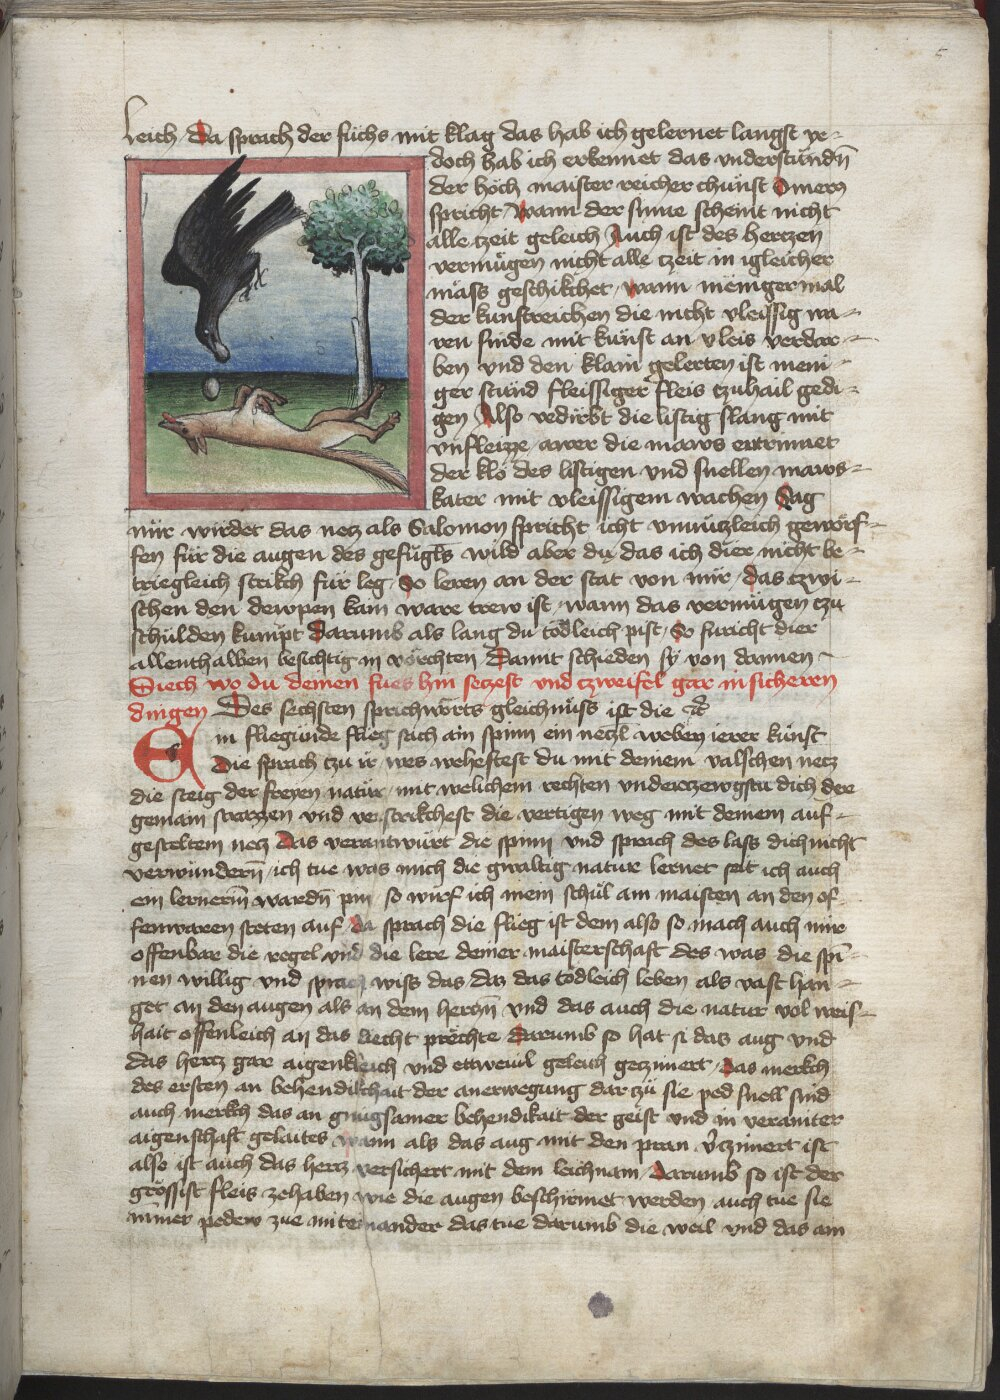 5
leich Da sprach der fuchs mit klag das hab ich gelernet langst ye-
doch hab ich erkennet das understundn̄
der hoch maister reicher chunst Omerus
spricht Wann der sunne scheint nicht
alle tzeit geleich Auch ist des hertzen
vermugen nicht alle tzeit in igleicher
mass geschikchet wann meniger mal
der kunstreichen die nicht vleissig wa-
ren sinde mit kunst an vleis verdor-
ben und den klain gelerten ist meni-
ger stund fleissiger fleis tzuhail gedi-
gen Also vedirbt die listig slang mit
unfleizze awer die maws entrinnet
der klo des listigen und snellen maws-
kater mit vleissigem wachen Sag
mir wirdet das netz als Salomon spricht icht unnutzleich geworf-
fen fur die augen des gefugls wild aber du das ich dier nicht be-
triegleich strikch fur leg So leren an der stat von mir das tzwi-
schen den dewpen kain ware trew ist wann das vermugen tzu
schulden kumpt Darumb als lang du todleich pist So furicht dier
allenthalben besichtig in vorchten Damit schieden sy von dannen
Siech wo du deinen fues hin setzest und tzweifel gar in sicheren
dingen Des sechsten sprichworts gleichnuss ist die etc
Ein fliegunde flieg sach ain spinn ein netzl weben ierer kunst
Die sprach tzu ir wes wehestest du mit deinem valschen netz
die steig der freyen natur mit welichem rechten undertzewgstu dich der
gemain strazzen und verstrikchest die vertigen weg mit deinem auf-
gesteltem netz Das verantwurt die spinn und sprach des lass dich nicht
verwundern̄ ich tue was mich die gwaltig natur lernet seit ich auch
ein lernerin̄ wardn̄ pin so wurf ich mein schul am maisten an den of-
fenwaren steten auf da sprach die flieg ist dem also so mach auch mir
offenbar die regel und die lere deiner maisterschaft des was die spī-
nen willig und sprach wiss das daz das todleich leben als vast han-
get an den augen als an dem hertzn̄ und das auch die natur vol weis-
hait offenleich an das liecht prechte Darumb so hat si daz aug und
das hertz gar aigenkleich und ettwevil geleich getzimert Das merkch
des ersten an behendikchait der anerwegung dar tzu sie ped snell sind
auch merkch das an gnugsamer behendikait der geist und in veraniter
aigenschaft gelaites wann als das aug mit den pran vertzinnert ist
also ist auch das hertz versichert mit dem leichnam Darumb so ist der
grossist fleis zehaben wie die augen beschirmet werden auch tue sie
nimer pedew zue miteinander das tue darumb die weil und das am